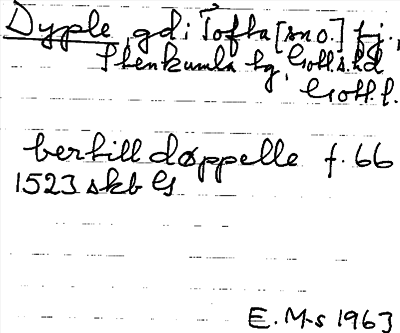 Dyple, gd i Tofta [sn o.] tg.,
Stenkumla tg, Gotl. s. hd
Gotl. l.
bertill døppelle f. 66
1523 skb G
E. M-s 1963